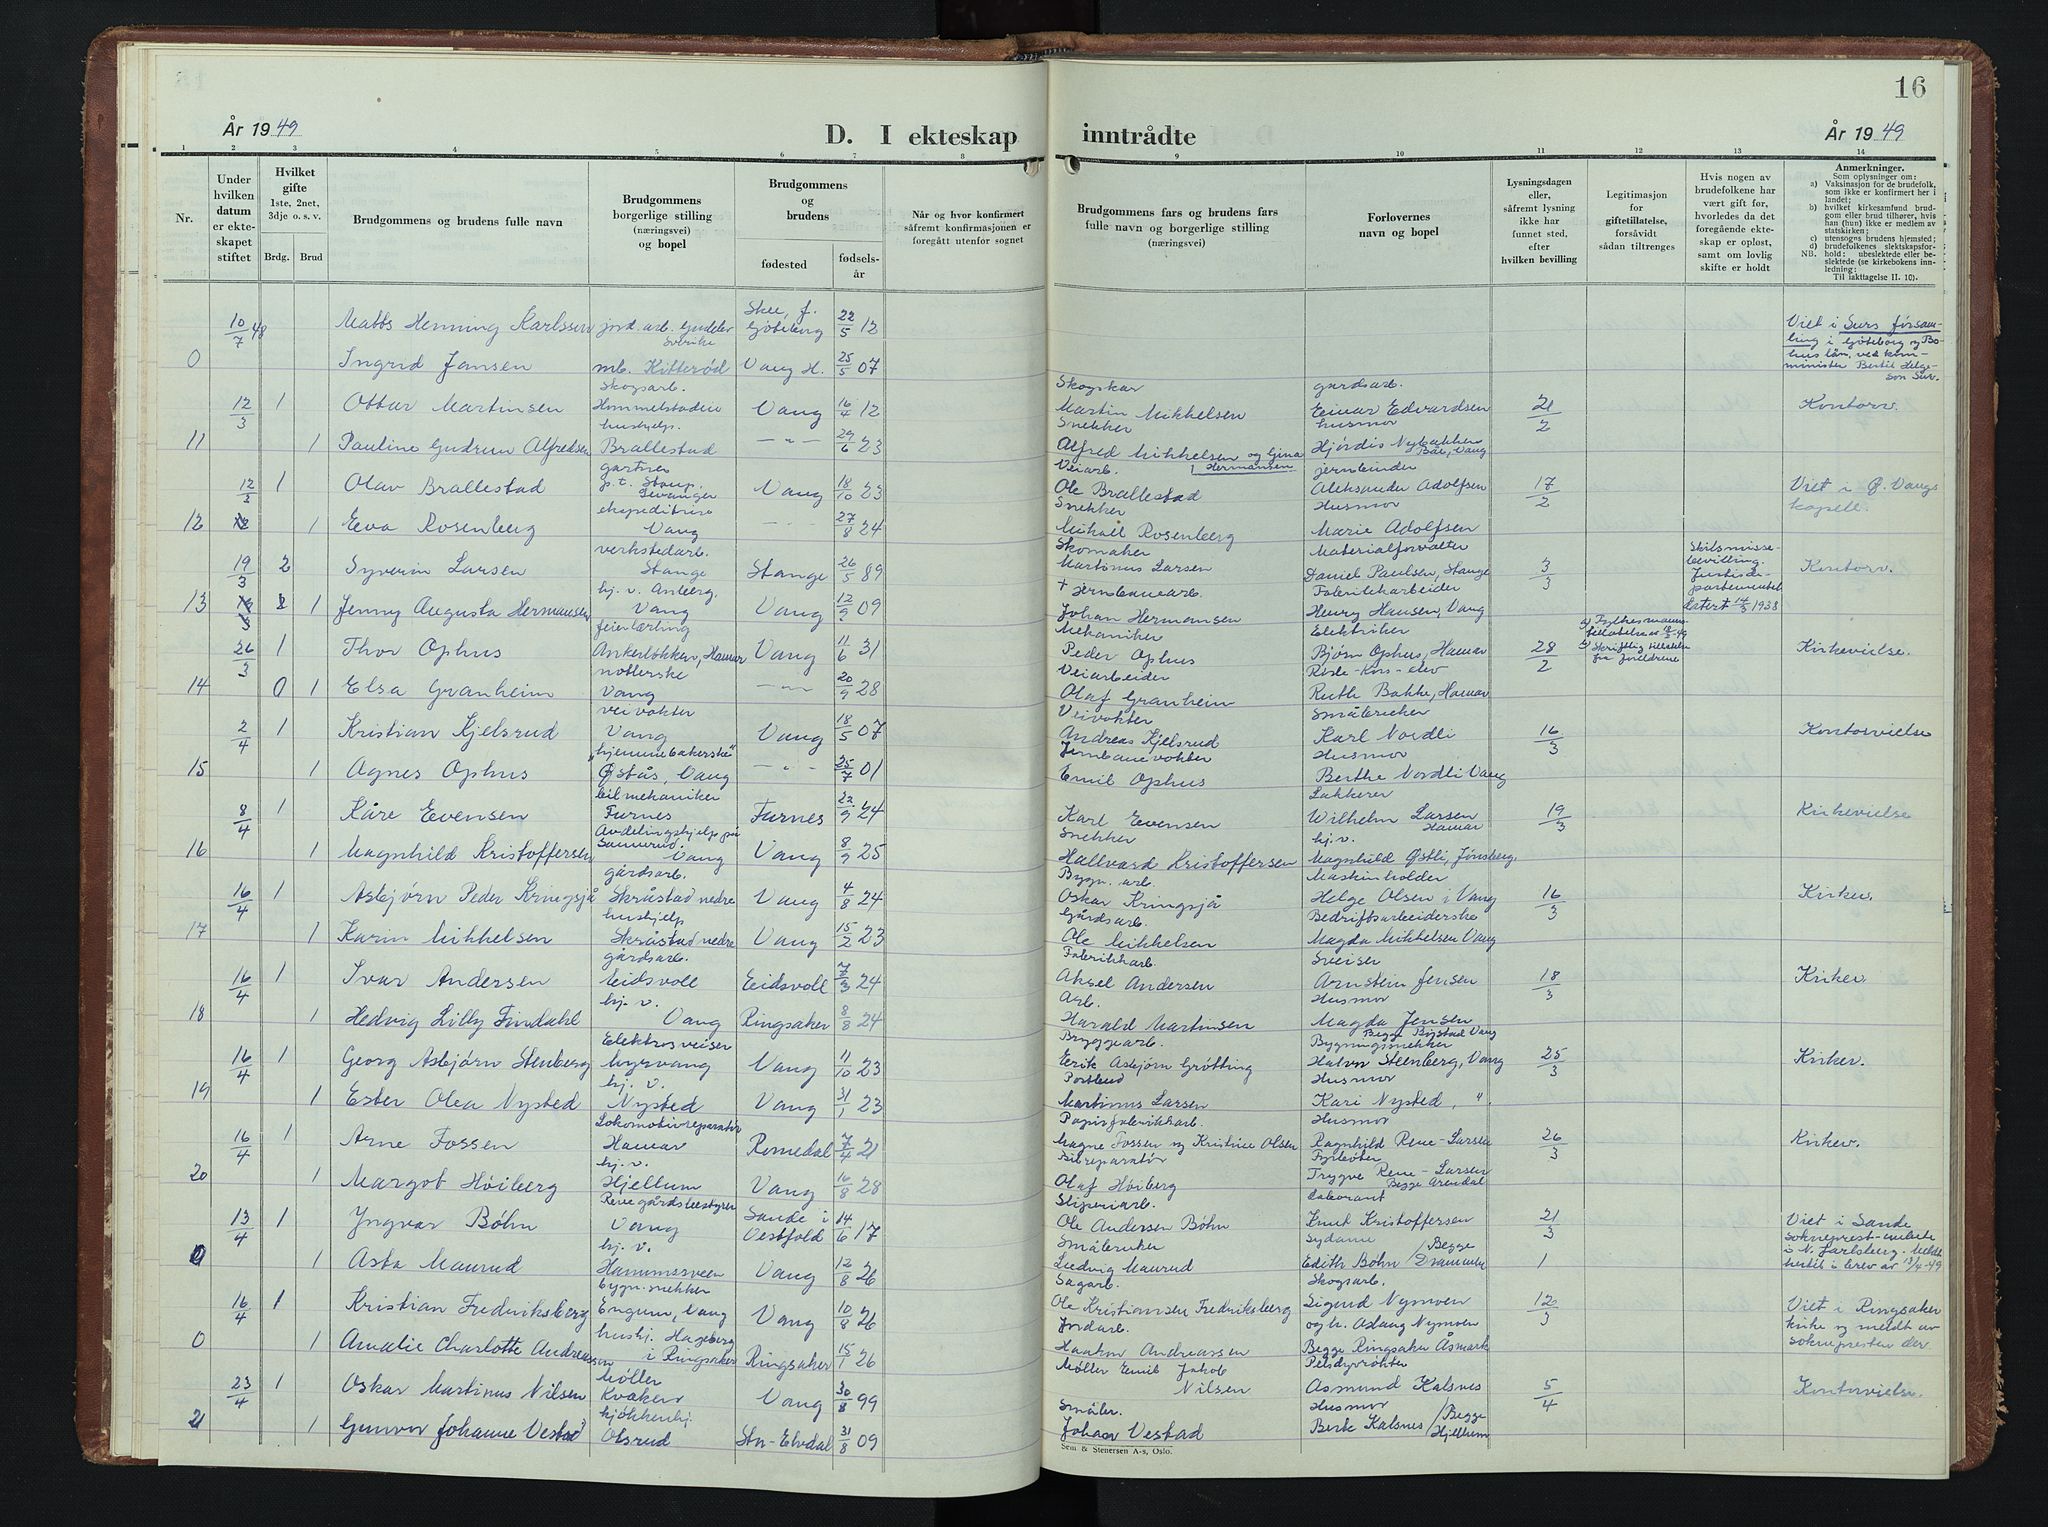 16
År 1949
D. I ekteskap inntrådte
År 1949
1 2 3 4 5 6 7 8 9 10 11 12 13 14
Nr.
Under hvilken datum er ekteskapet stiftet
Hvilket gifte 1ste, 2net, 3dje o. s. v.
Brdg.
Brud
Brudgommens og brudens fulle navn
Brudgommens borgerlige stilling (næringsvei) og bopel
Brudgommens og brudens
fødested
fødselsår
Når og hvor konfirmert såfremt konfirmasjonen er foregått utenfor sognet
Brudgommens fars og brudens fars fulle navn og borgerlige stilling (næringsvei)
Forlovernes navn og bopel
Lysningsdagen eller, såfremt lysning ikke har funnet sted, efter hvilken bevilling
Legitimasjon for giftetillatelse, forsåvidt sådan tiltrenges
Hvis nogen av brudefolkene har vært gift før, hvorledes da det foregående ekteskap er opløst, samt om lovlig skifte er holdt
Anmerkninger.
Som oplysninger om:
a) Vaksinasjon for de brudefolk, som ikke er konfirmert her i landet;
b) hvilket kirkesamfund brudgom eller brud tilhører, hvis han (hun) ikke er medlem av statskirken;
c) utensogns brudens hjemsted;
d) brudefolkenes slektskapsforhold: ubeslektede eller beslektede (se kirkebokens innledning: Til iakttagelse II. 10).
NB.
10/7 48 Matts Henning Karlssen jord.arb. Sverike Skee, f. Göteborg 22/5 12 Viet i Surs församling i Göteborg og Bohus län, ved komminister Bertil Helgeson Sur.
0 Ingrid Jansen mb. Kitterød Vang H. 25/5 07
12/3 1 Ottar Martinsen Skogsarb. Hommelstadeie Vang 16/4 12 Skogskar Martin Mikkelsen gardsarb. Einar Edvardsen 21/2 Kontorv.
11 1 Pauline Gudrun Alfredsen hushjelp. Brallestad — " — 29/6 23 Snekker Alfred Mikkelsen og Gina Hermansen husmor Hjördis Nybakken Vang
12/3 1 Olav Brallestad gartner p.t. Staup, Levanger Vang 18/10 23 Veiarb. Ole Brallestad jernbinder Aleksander Adolfsen 17/2 Viet i Ø. Vangs kapell.
12 1 Eva Rosenberg ekspeditrise Vang — " — 27/8 24 Snekker Mikael Rosenberg Husmor Marie Adolfsen
19/3 2 Syverin Larsen verkstedarb. Stange Stange 26/5 89 Skomaker Martinus Larsen Materialforvalter Daniel Paulsen, Stange 3/3 Skilsmissebevilling. Justisdepartementet datert 14/5 1938 Kontorv.
13 1 Jenny Augusta Hermansen hj. v. Anberg, Vang Vang 12/2 09 + jernbanearb. Johan Hermansen Fabrikkarbeider Henry Hansen, Vang
26/3 1 Thor Ophus feierlærling Ankerløkken, Hamar Vang 11/6 31 Mekaniker Peder Ophus Elektriker Bjørn Ophus, Hamar 28/2 a) Fylkesmanns tillatelse b) Skriftlig tillatelse fra foreldrene Kirkevielse.
14 0 1 Elsa Granheim Vang — " — 20/9 28 Veiarbeider Olaf Granheim Ruth Bakke, Hamar
2/4 1 Kristian Kjelsrud veivokter Vang Vang 18/5 07 Veivokter Andreas Kjelsrud Småbruker Karl Nordli 16/3 Kontorvielse
15 1 Agnes Ophus "hjemmebakerske" Østås, Vang — " — 25/7 01 Jernbanevokter Emil Ophus Husmor Berthe Nordli Vang
8/4 1 Kåre Evensen bilmekaniker Furnes Furnes 22/9 24 Karl Evensen Lakkerer Wilhelm Larsen Hamar 19/3 Kirkevielse
16 1 Magnhild Kristoffersen Avdelingshjelp på Sannerud. Vang Vang 8/9 25 Snekker Hallvard Kristoffersen hj. v. Magnhild Østli, Jønsberg.
16/4 1 Asbjørn Peder Kringsjå gårdsarb. Skråstad nedre Vang 4/8 24 Bygn. arb. Oskar Kringsjå Maskinholder Helge Olsen i Vang 16/3 Kirkev.
17 1 Karin Mikkelsen hushjelp Skråstad nedre Vang 15/2 23 Gårdsarb. Ole Mikkelsen Bedriftsarbeiderske Magda Mikkelsen Vang
16/4 1 Ivar Andersen gårdsarb. Eidsvoll Eidsvoll 7/3 24 Fabrikkarb. Aksel Andersen Sveiser Arnstein Jensen 18/3 Kirkev.
18 1 Hedvig Lilly Findahl hj. v. Vang Ringsaker 8/8 24 Arb. Harald Martinsen Husmor Magda Jensen Begge Vang
16/4 1 Georg Asbjørn Stenberg Elektrosveiser Myrvang Vang 11/10 23 Bryggearb. Erik Asbjørn Grøtting Bygningssnekker Halvor Steenberg, Vang 25/3 Kirkev.
19 1 Ester Olea Nysted hj. v. Nysted Vang 31/1 23 Postbud Martinus Larsen Husmor Kari Nysted, "
16/4 1 Arne Fossen Lokomotivreparatør Hamar Romedal 7/4 21 Papirfabrikkarb. Magne Fossen og Kristine Olsen Husmor Ragnhild Rene-Larsen 26/3 Kirkev.
20 1 Margot Høiberg hj. v. Hjellum Vang 16/8 28 Bilreparatør Olaf Høiberg Fyrbøter Trygve Rene-Larsen Begge Arendal
13/4 1 Yngvar Bøhn gårdsbestyrer Vang Sande i Vestfold 14/6 17 Sliperiarb. Ole Andersen Bøhn Laborant Knut Kristoffersen 21/3 Viet i Sande sokneprest-embete i N. Jarlsberg. Meldt hertil i brev av 13/4-49
0 1 Asta Maurud hj. v. Hammssveen Vang 12/8 26 Småbruker Ludvig Maurud Sydame Edith Bøhn Begge Drammen 1
16/4 1 Kristian Fredriksberg bygn.snekker Engum, Vang Vang 10/8 26 Sagarb. Ole Kristiansen Fredriksberg Skogsarb. Sigurd Nymoen 12/3 Viet i Ringsaker kirke og meldt av soknepresten der
0 1 Amalie Charlotte Andreassen hushj. Hageberg i Ringsaker Ringsaker 15/1 26 Jordarb. Haakon Andreassen og h. Aslaug Nymoen Begge Ringsaker Åsmark
23/4 1 Oskar Martinus Nilsen Møller Kvakerv Vang 30/8 99 Møller Emil Jakob Nilsen Pelsdyrrøkter Asmund Kalsnes 5/4 Kontorvielse.
21 1 Gunvor Johanne Vestad kjøkkenhj. Olsrud Stor-Elvdal 31/8 09 Småbr. Johan Vestad Husmor Berit Kalsnes Begge Hjellum
Sem & Stenersen A-s, Oslo.